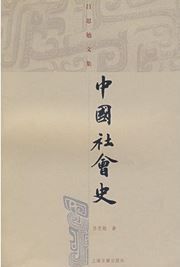 吕思勉文集
中國社會史
吕思勉 著
上海古籍出版社